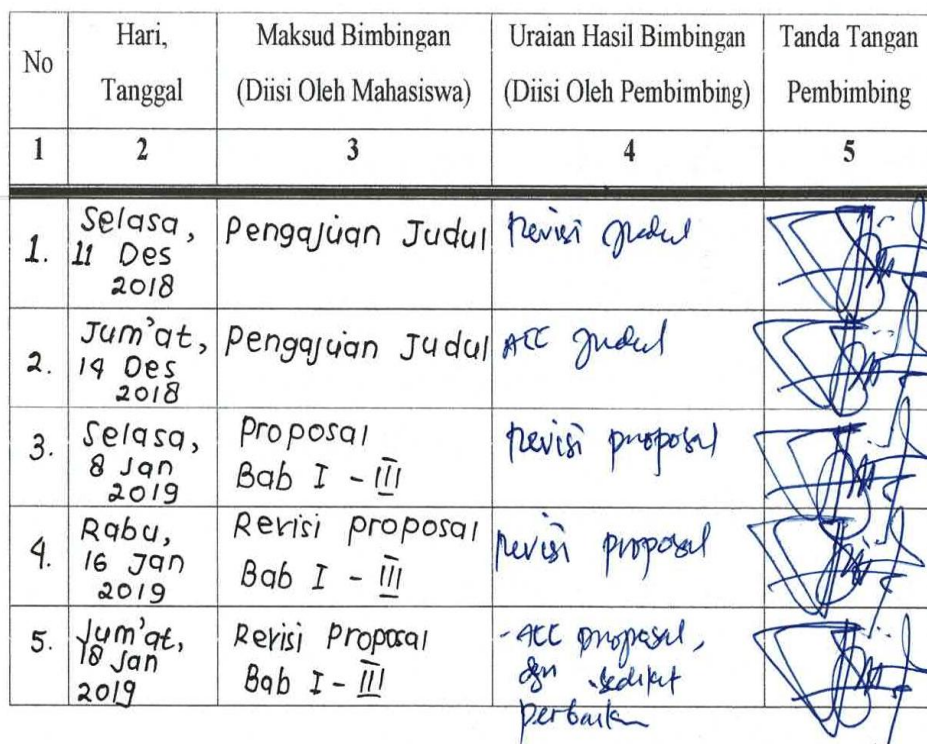 No
Hari,
Tanggal
Maksud Bimbingan
(Diisi Oleh Mahasiswa)
Uraian Hasil Bimbingan
(Diisi Oleh Pembimbing)
Tanda Tangan
Pembimbing
1 2 3 4 5
1.
Selasa,
11 Des
2018
Pengajuan Judul
Revisi Judul
2.
Jum'at,
14 Des
2018
Pengajuan Judul
ACC Judul
3.
Selasa,
8 Jan
2019
Proposal
Bab I - III
Revisi proposal
4.
Rabu,
16 Jan
2019
Revisi proposal
Bab I - III
Revisi proposal
5.
Jum'at,
18 Jan
2019
Revisi Proposal
Bab I - III
- ACC proposal,
dgn sedikit
perbaikan